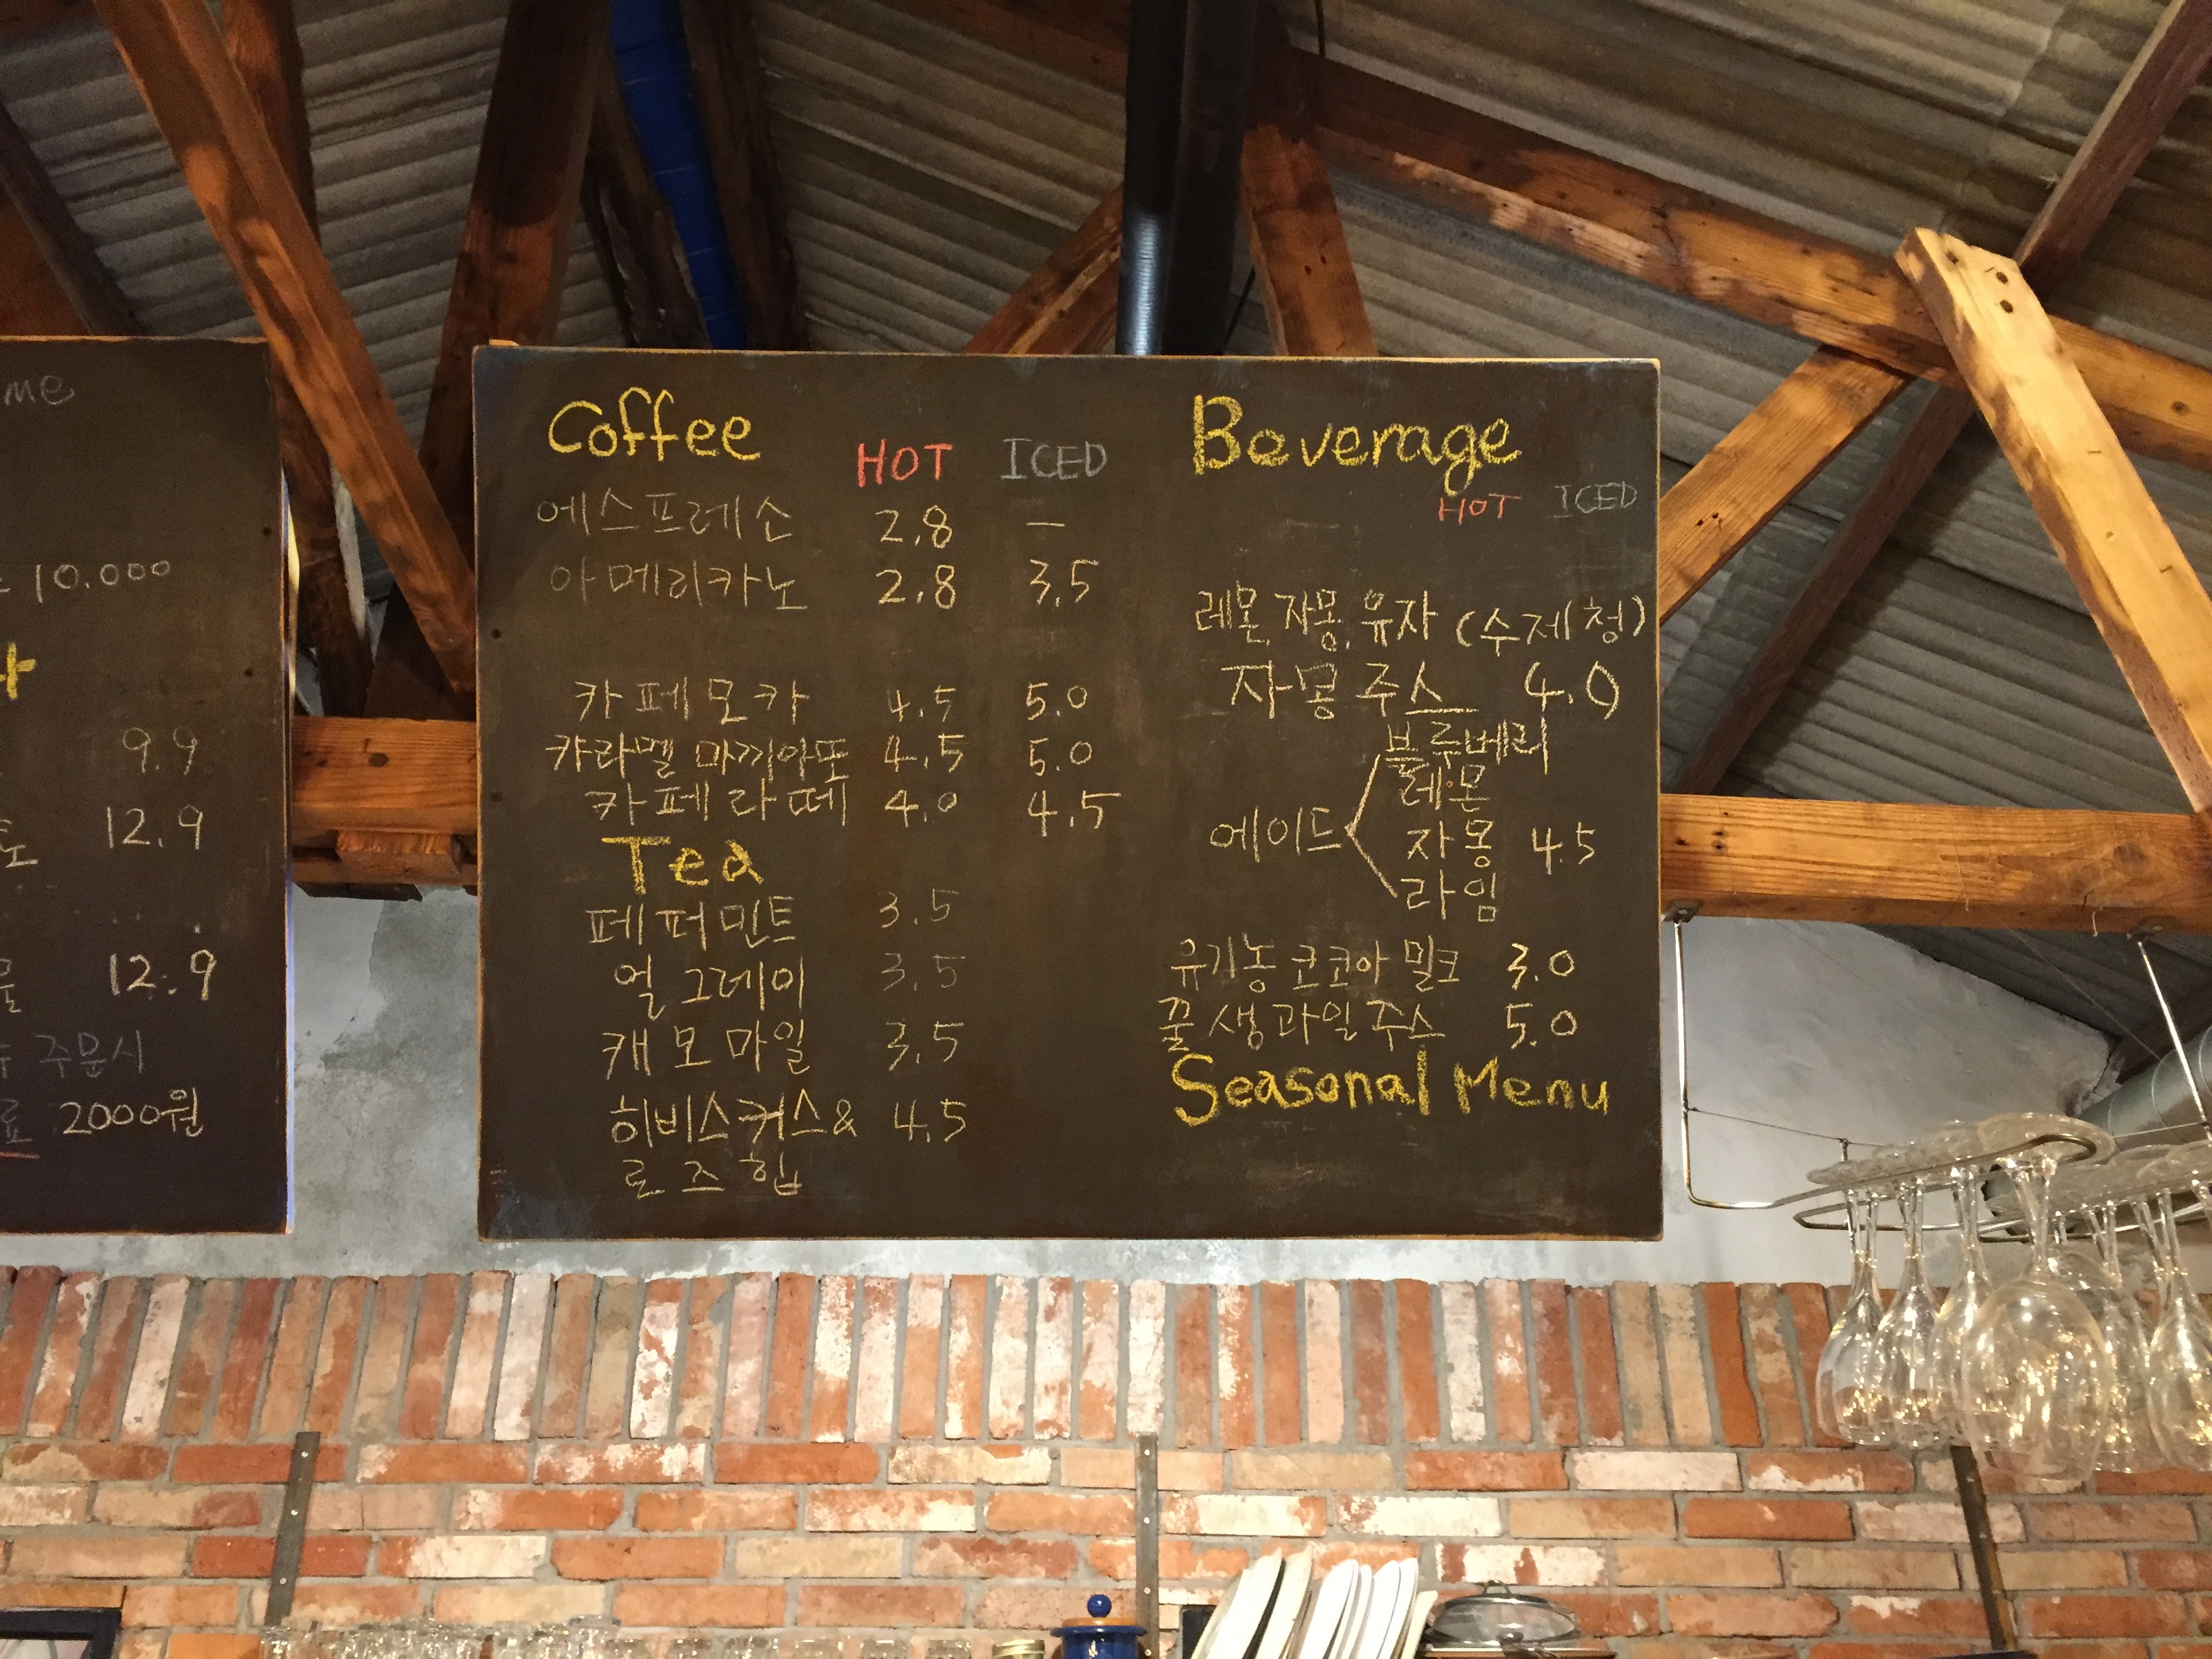 me
10.000
9.9
12.9
12.9
주문시
료 2000원
Coffee
HOT ICED
에스프레소 2.8 —
아메리카노 2.8 3.5
카페모카 4.5 5.0
캬라멜 마끼아또 4.5 5.0
카페라떼 4.0 4.5
Tea
페퍼민트 3.5
얼그레이 3.5
캐모마일 3.5
히비스커스& 4.5
로즈힙
Beverage
HOT ICED
레몬, 자몽, 유자 (수제청)
자몽주스 4.0
블루베리
레몬
에이드 자몽 4.5
라임
유기농 코코아 밀크 3.0
꿀생과일주스 5.0
Seasonal Menu